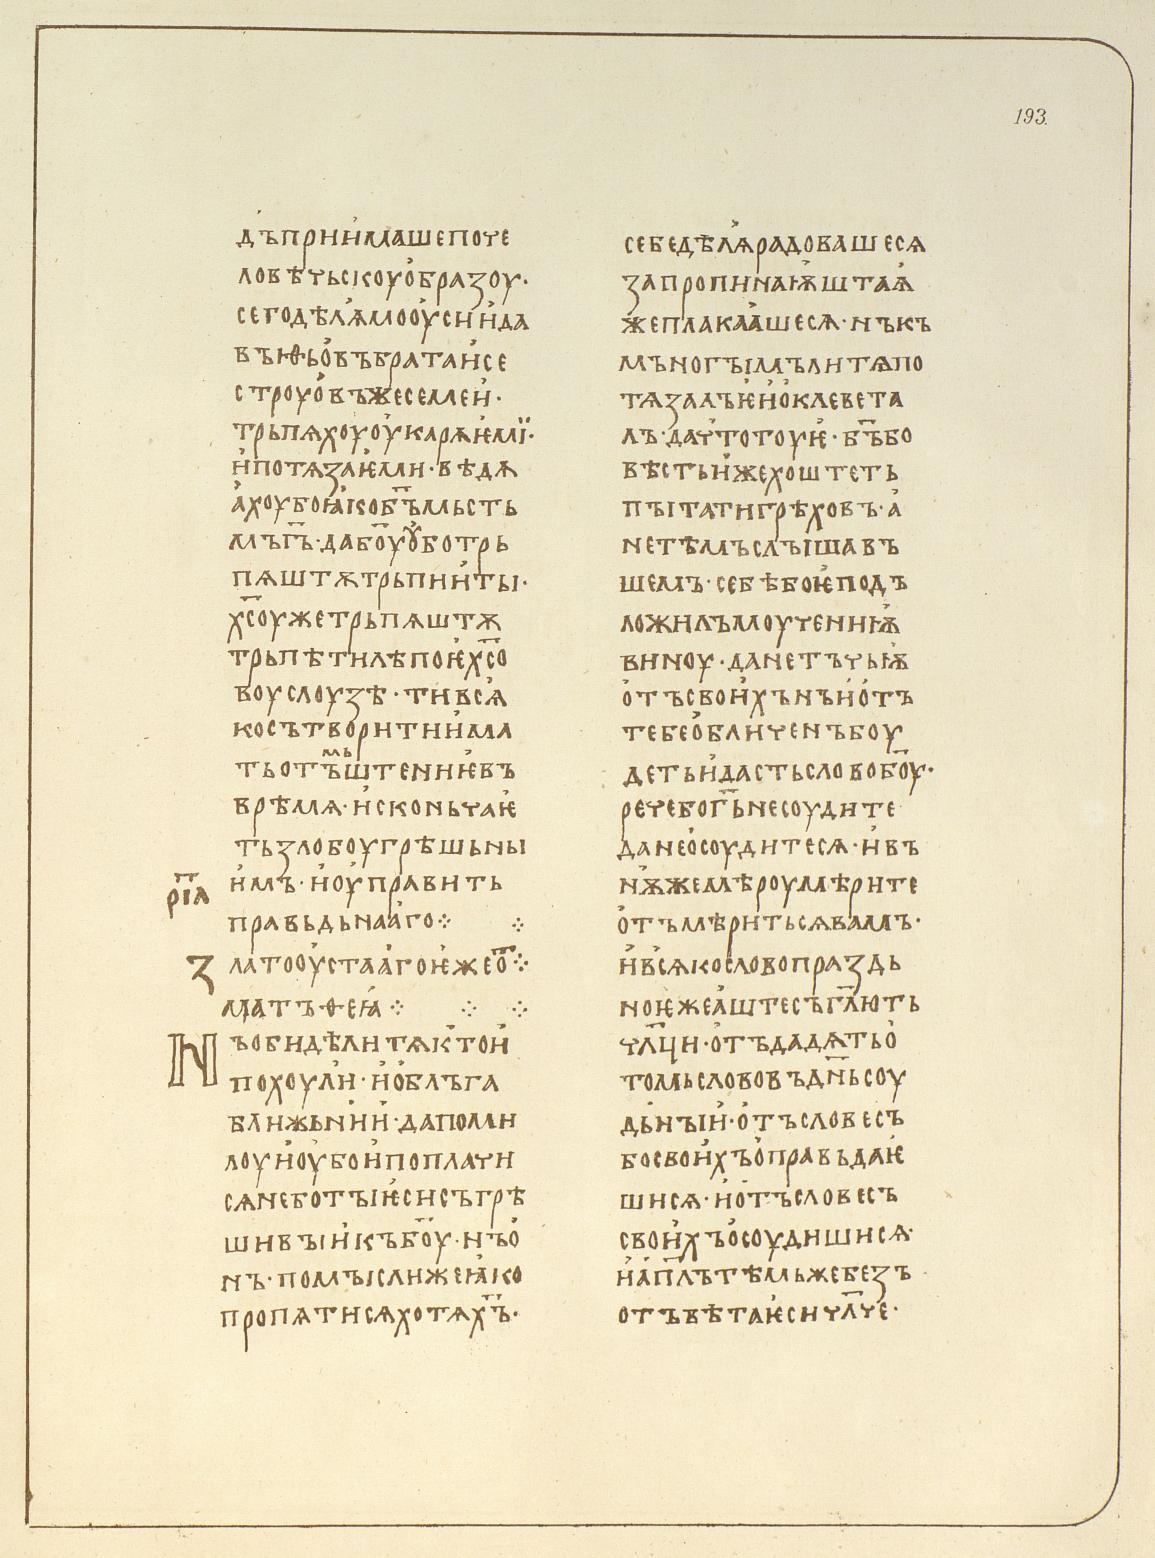 193.
дъприимашепоче
ловѣчьскоуобразоу·
сегодѣлѧмооусиида
въиѥьовъбратаисе
строуовъжесемеи·
трьпѧхоуоукарѧѥмї·
ипотѧзаѥми·вѣдѧ
ахоубоꙗкоб҃ъмьсть
мъг҃ъ·дабо҃уоуботрь
пѧштѫтрьпиите·
хс҃оужетрьпѧштѫ
трьпѣтилѣпоѥхс҃о
воуслоузѣ·тивсꙗ
косътворитиима
тьотъмьштениѥвъ
врѣмѧ·исконьчаѥ
тьзлобоугрѣшьны
имъ·иоуправить
правьдьнааго⁘ ⁘
р҃і҃а
златооустаагоѥжео҃⁘
матъфеꙗ⁘ ⁘ ⁘
Nъобидѣлитѧктои
похоули·иоблъга
ближьнии·дапоми
лоуиоубоипоплачи
сѧнеботыѥсисъгрѣ
шивыикъбо҃у·нъо
нъ·помыслижеꙗко
пропѧтисѧхотѧх҃ъ·
себедѣлꙗрадовашесѧ
запропинаѭштаꙗ
жеплакаашесѧ·нъкъ
мъногымълитѧпо
тѧзалъѥиоклевета
лъ·дачтотоуѥ·б҃ъбо
вѣстьижехоштеть
пытатигрѣховъ·а
нетѣмъслышавъ
шемъ·себѣбоѥподъ
ложилъмоучениѭ
виноу·данетъчьѭ
отъсвоихънъиотъ
тебеобличенъбоу
детьидастьсловобо҃у·
речебог҃ьнесоудите
данеосоудитесѧ·ивъ
нѫжемѣроумѣрите
отъмѣритьсѧвамъ·
ивсꙗкословопраздь
ноѥжеаштесъгл҃ють
чл҃ци·отъдадѧтьо
томьсловъвъдн҃ьсоу
дьныи·отъсловесъ
босвоихъоправьдаѥ
шисѧ·иотъсловесъ
своихъосоудишисѧ·
иап҃лътѣмьжебезъ
отъвѣтаѥсичл҃че·